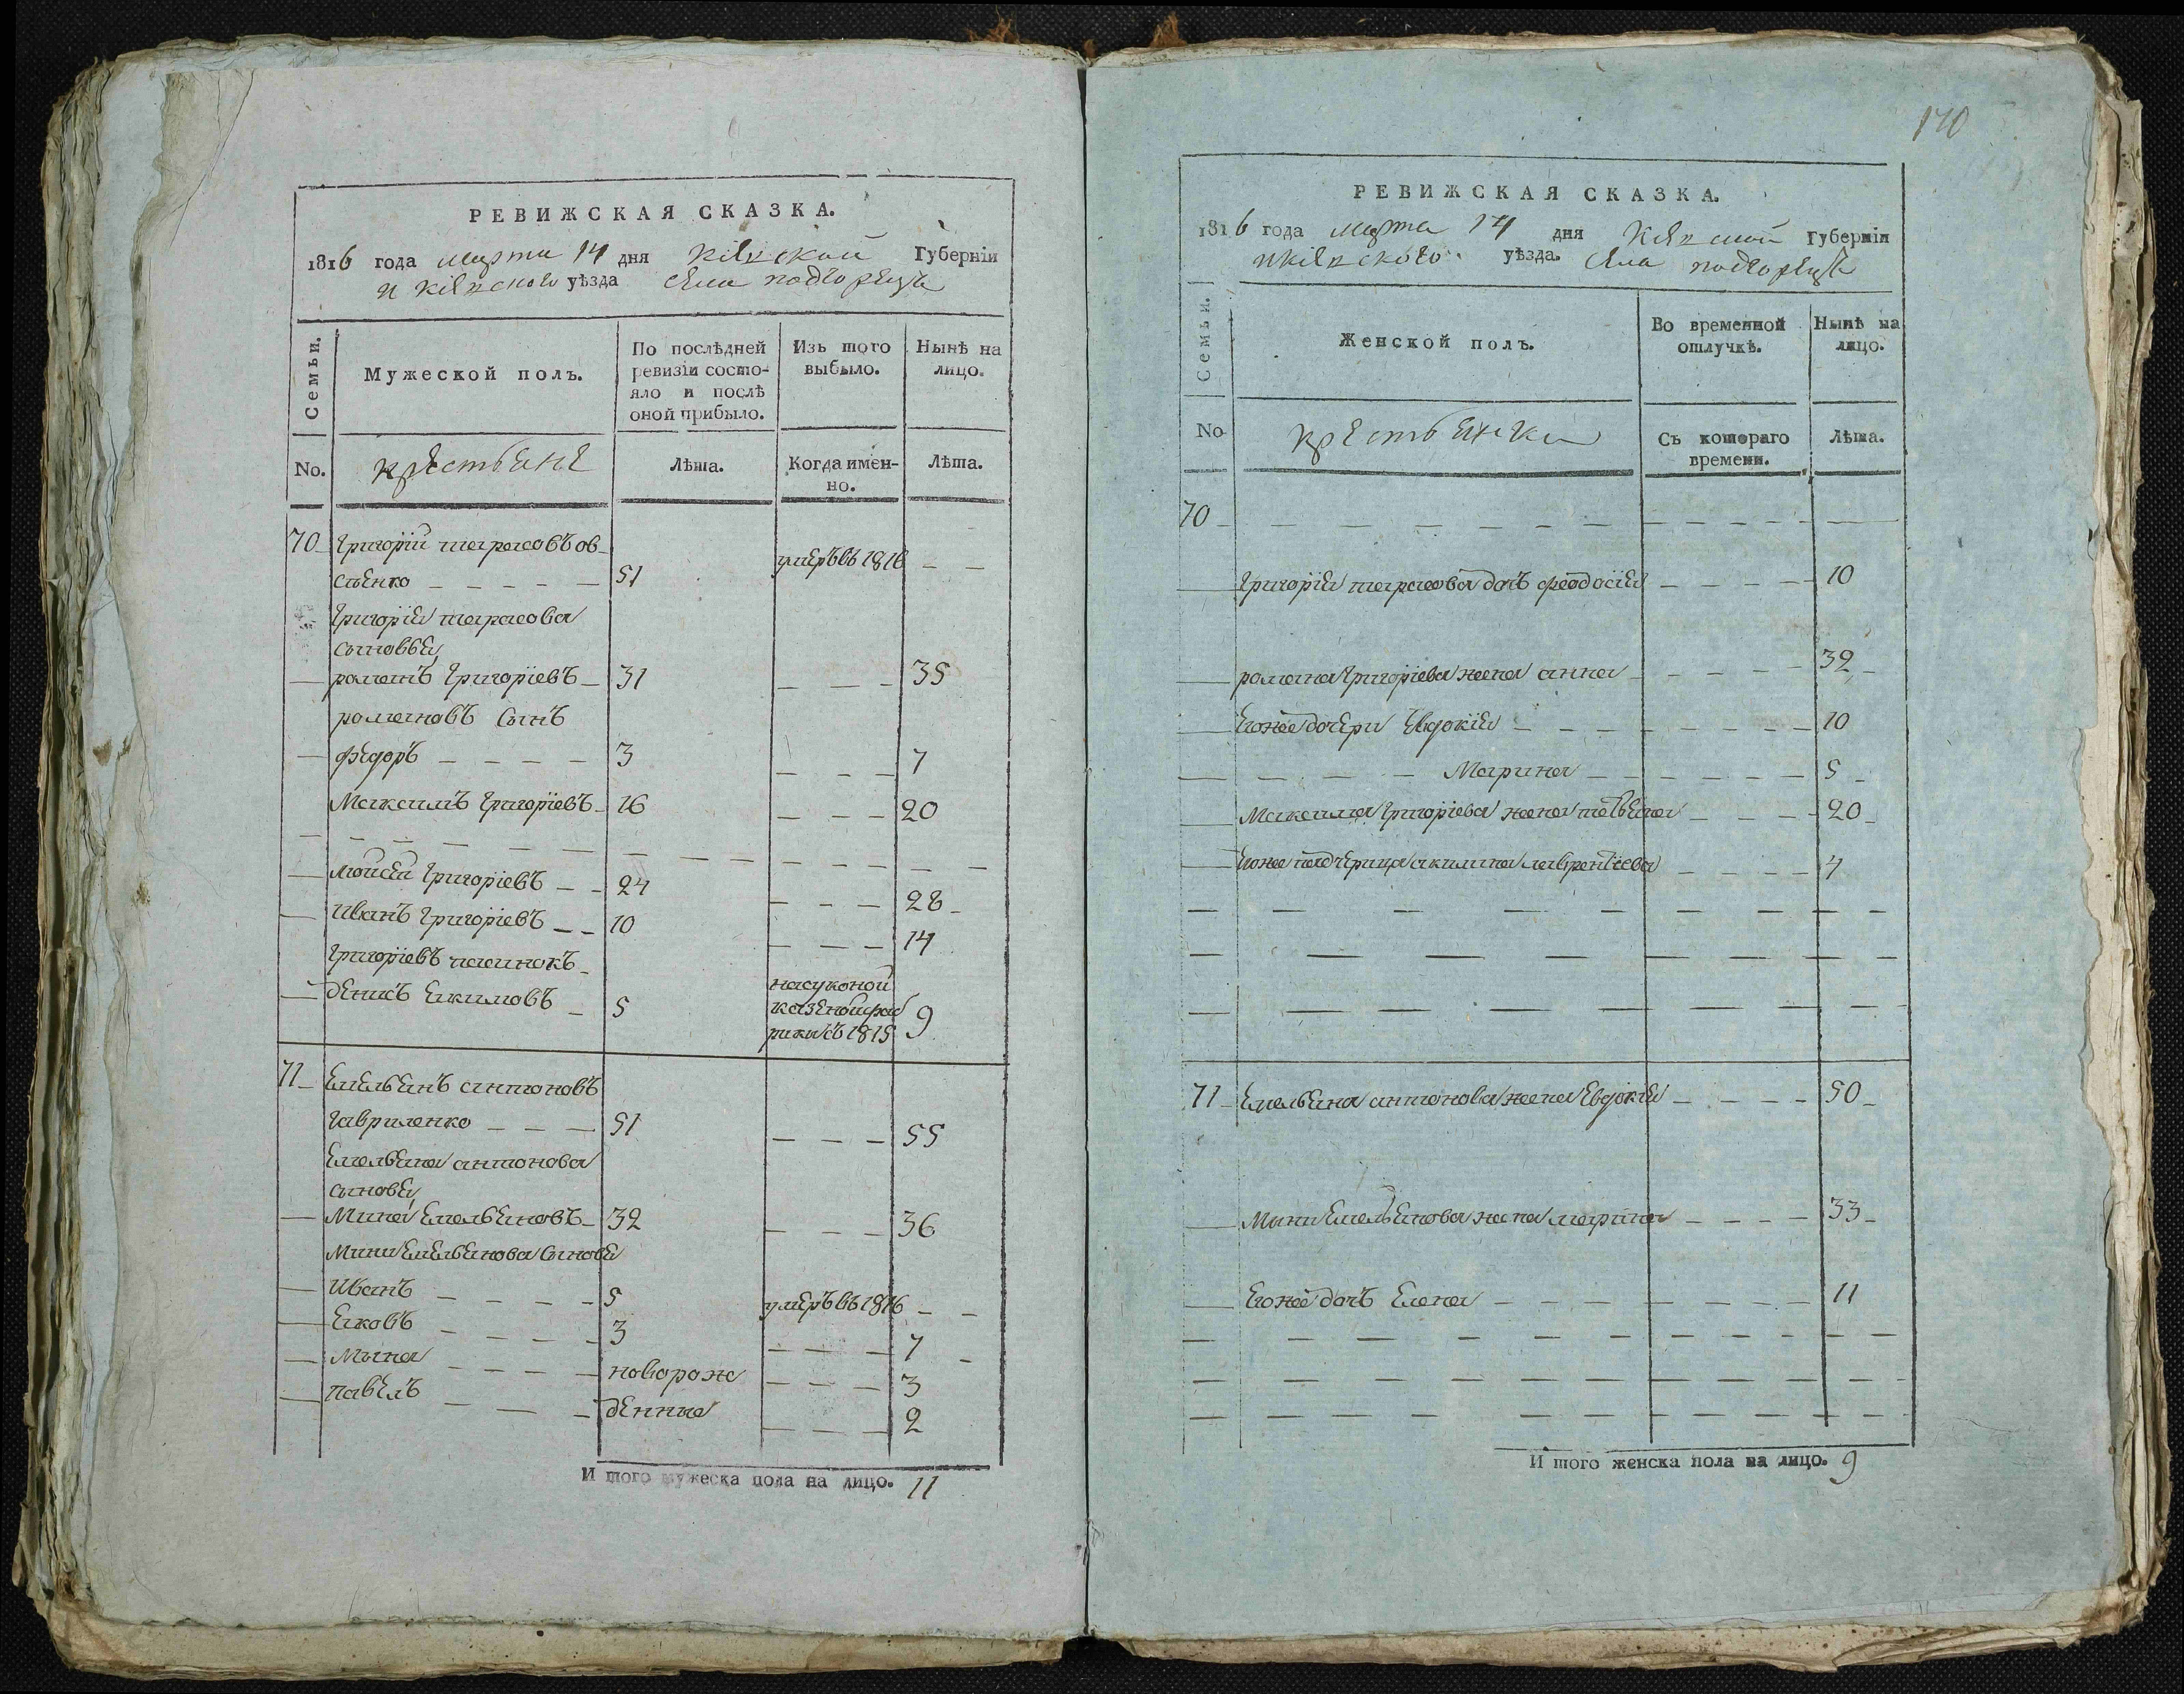 РЕВИЖСКАЯ СКАЗКА.
1816 года марта 14 дня Кіевской Губерніи
и Кіевского уѣзда села подгорецъ
Семьи.
Мужеской полъ.
По послѣдней ревизіи состояло и послѣ оной прибыло.
Изъ того выбыло.
Нынѣ на лицо.
No.
крестьяне
Лѣта.
Когда именно.
Лѣта.
70 Григорій тарасовъ ов
сѣенко 51 умеръ въ 1816
Григорія тарасова
сыновья
романъ Григоріевъ 31 35
романовъ Сынъ
Федоръ 3 7
Максимъ Григоріевъ 16 20
мойсей Григоріевъ 24 28
Иванъ Григоріевъ 10 14
Григоріевъ пасинокъ
денисъ Екимовъ 5 на суконой казеной фабрики съ 1815 9
71 Емельянъ антоновъ
гавриленко 51 55
Емельяна антонова
сыновья
Миней Емельяновъ 32 36
Мини Емельянова Сыновья
Иванъ 5 умеръ въ 1816
Яковъ 3 7
Мына 3
новорож
павелъ 2
денные
И того мужеска пола на лицо. 11
170
РЕВИЖСКАЯ СКАЗКА.
1816 года марта 14 дня Кіевской Губерніи
и Кіевского уѣзда. села подгорецъ
Семьи.
Женской полъ.
Во временной отлучкѣ.
Нынѣ на лицо.
No
крестьянки
Съ котораго времени.
Лѣта.
70
Григорія тарасова дочъ феодосія 10
романа Григоріева жена анна 32
Его жѣ дочери Евдокія 10
Марина 5
Максима Григоріева жена татьяна 20
Его же падчерица акилина лаврентіева 4
71 Емельяна антонова жена Евдокія 50
Мини Емельянова жена марина 33
Его жѣ дочъ Елена 11
И того женска пола на лицо. 9